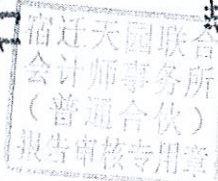 宿迁天园联合
会计师事务所
（普通合伙）
报告审核专用章